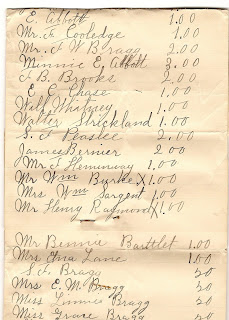 E. Abbott 1.00
Mr. F. Cooledge 1.00
Mr. F W Bragg 2.00
Minnie E. Abbott 3.00
F. B. Brooks 2.00
E. C. Chase 1.00
Will Whitney 1.00
Walter Strickland 1.00
S. F. Peaslee 2.00
James Bernier 2.00
Mr. F Hemenway 1.00
Mr Wm Byrke X 1.00
Mrs Wm Sargent 1.00
Mr Henry Raymond X 1.00
Mr Bennie Bartlet 1.00
Mrs Ina Lane 1.00
S. F. Bragg 20
Mrs E. M. Bragg 20
Miss Linnie Bragg 20
Miss Grace Bragg 20